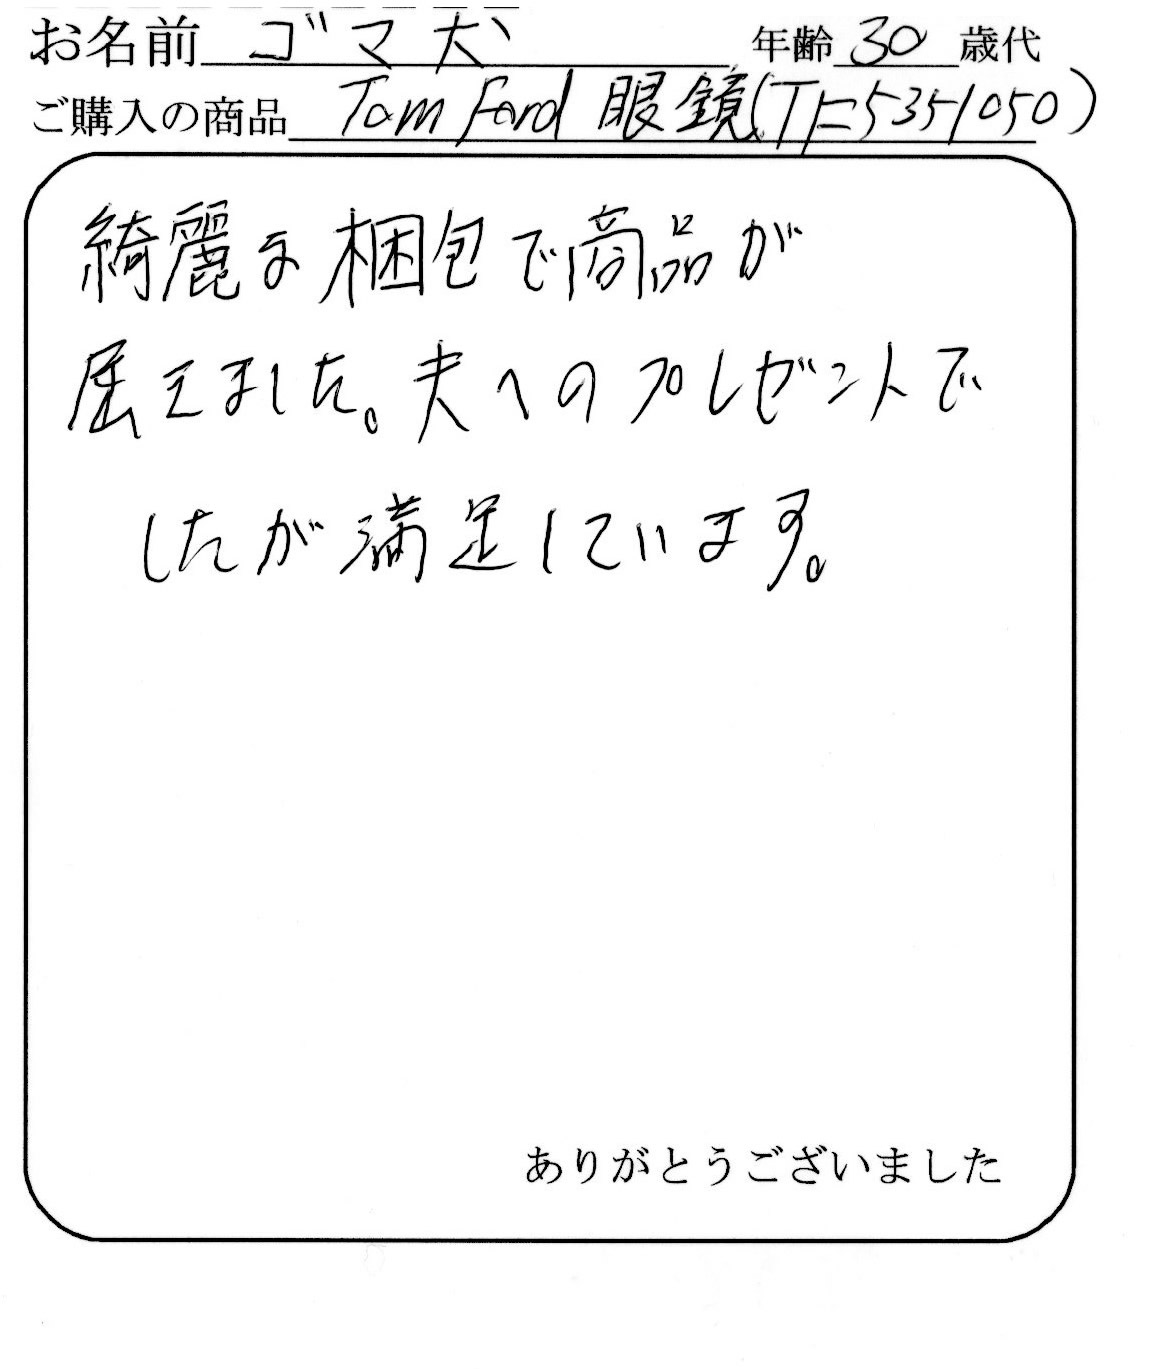 お名前 ゴマ犬 年齢 30 歳代
ご購入の商品 Tom Ford 眼鏡(TF5351050)
綺麗な梱包で商品が
届きました。夫へのプレゼントで
したが満足しています。
ありがとうございました